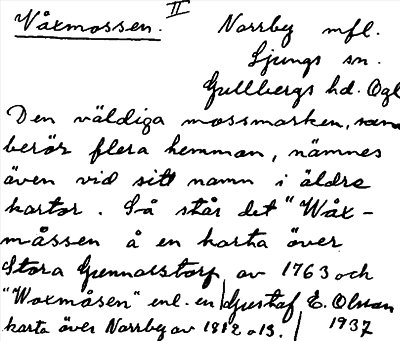 Wåxmossen. II Norrby mfl.
Ljungs sn.
Gullbergs hd. Ögl
Den väldiga mossmarken, som
berör flera hemman, nämnes
även vid sitt namn i äldre
kartor. Så står det "Wåx-
måssen å en karta över
Stora Gunnarstorp, av 1763 och
"Waxmåsen" enl. en
karta över Norrby av 1812 o 13.
Gustaf E. Olsson
1937